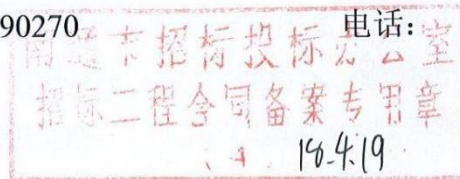 90270 电话：
南通市招标投标办公室
招标工程合同备案专用章
18.4.19